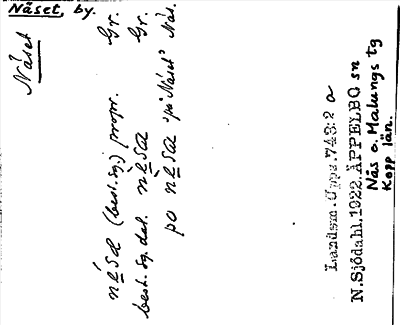 Näset, by.
Näset
näsä (best. sg.) propr. Gr.
best. sg. dat. näsä Gr.
po näsä "på Näset" Näs.
Landsm. Upps. 743:2 a
N. Sjödahl. 1922. ÄPPELBO sn
Nås o. Malungs tg
Kopp län.